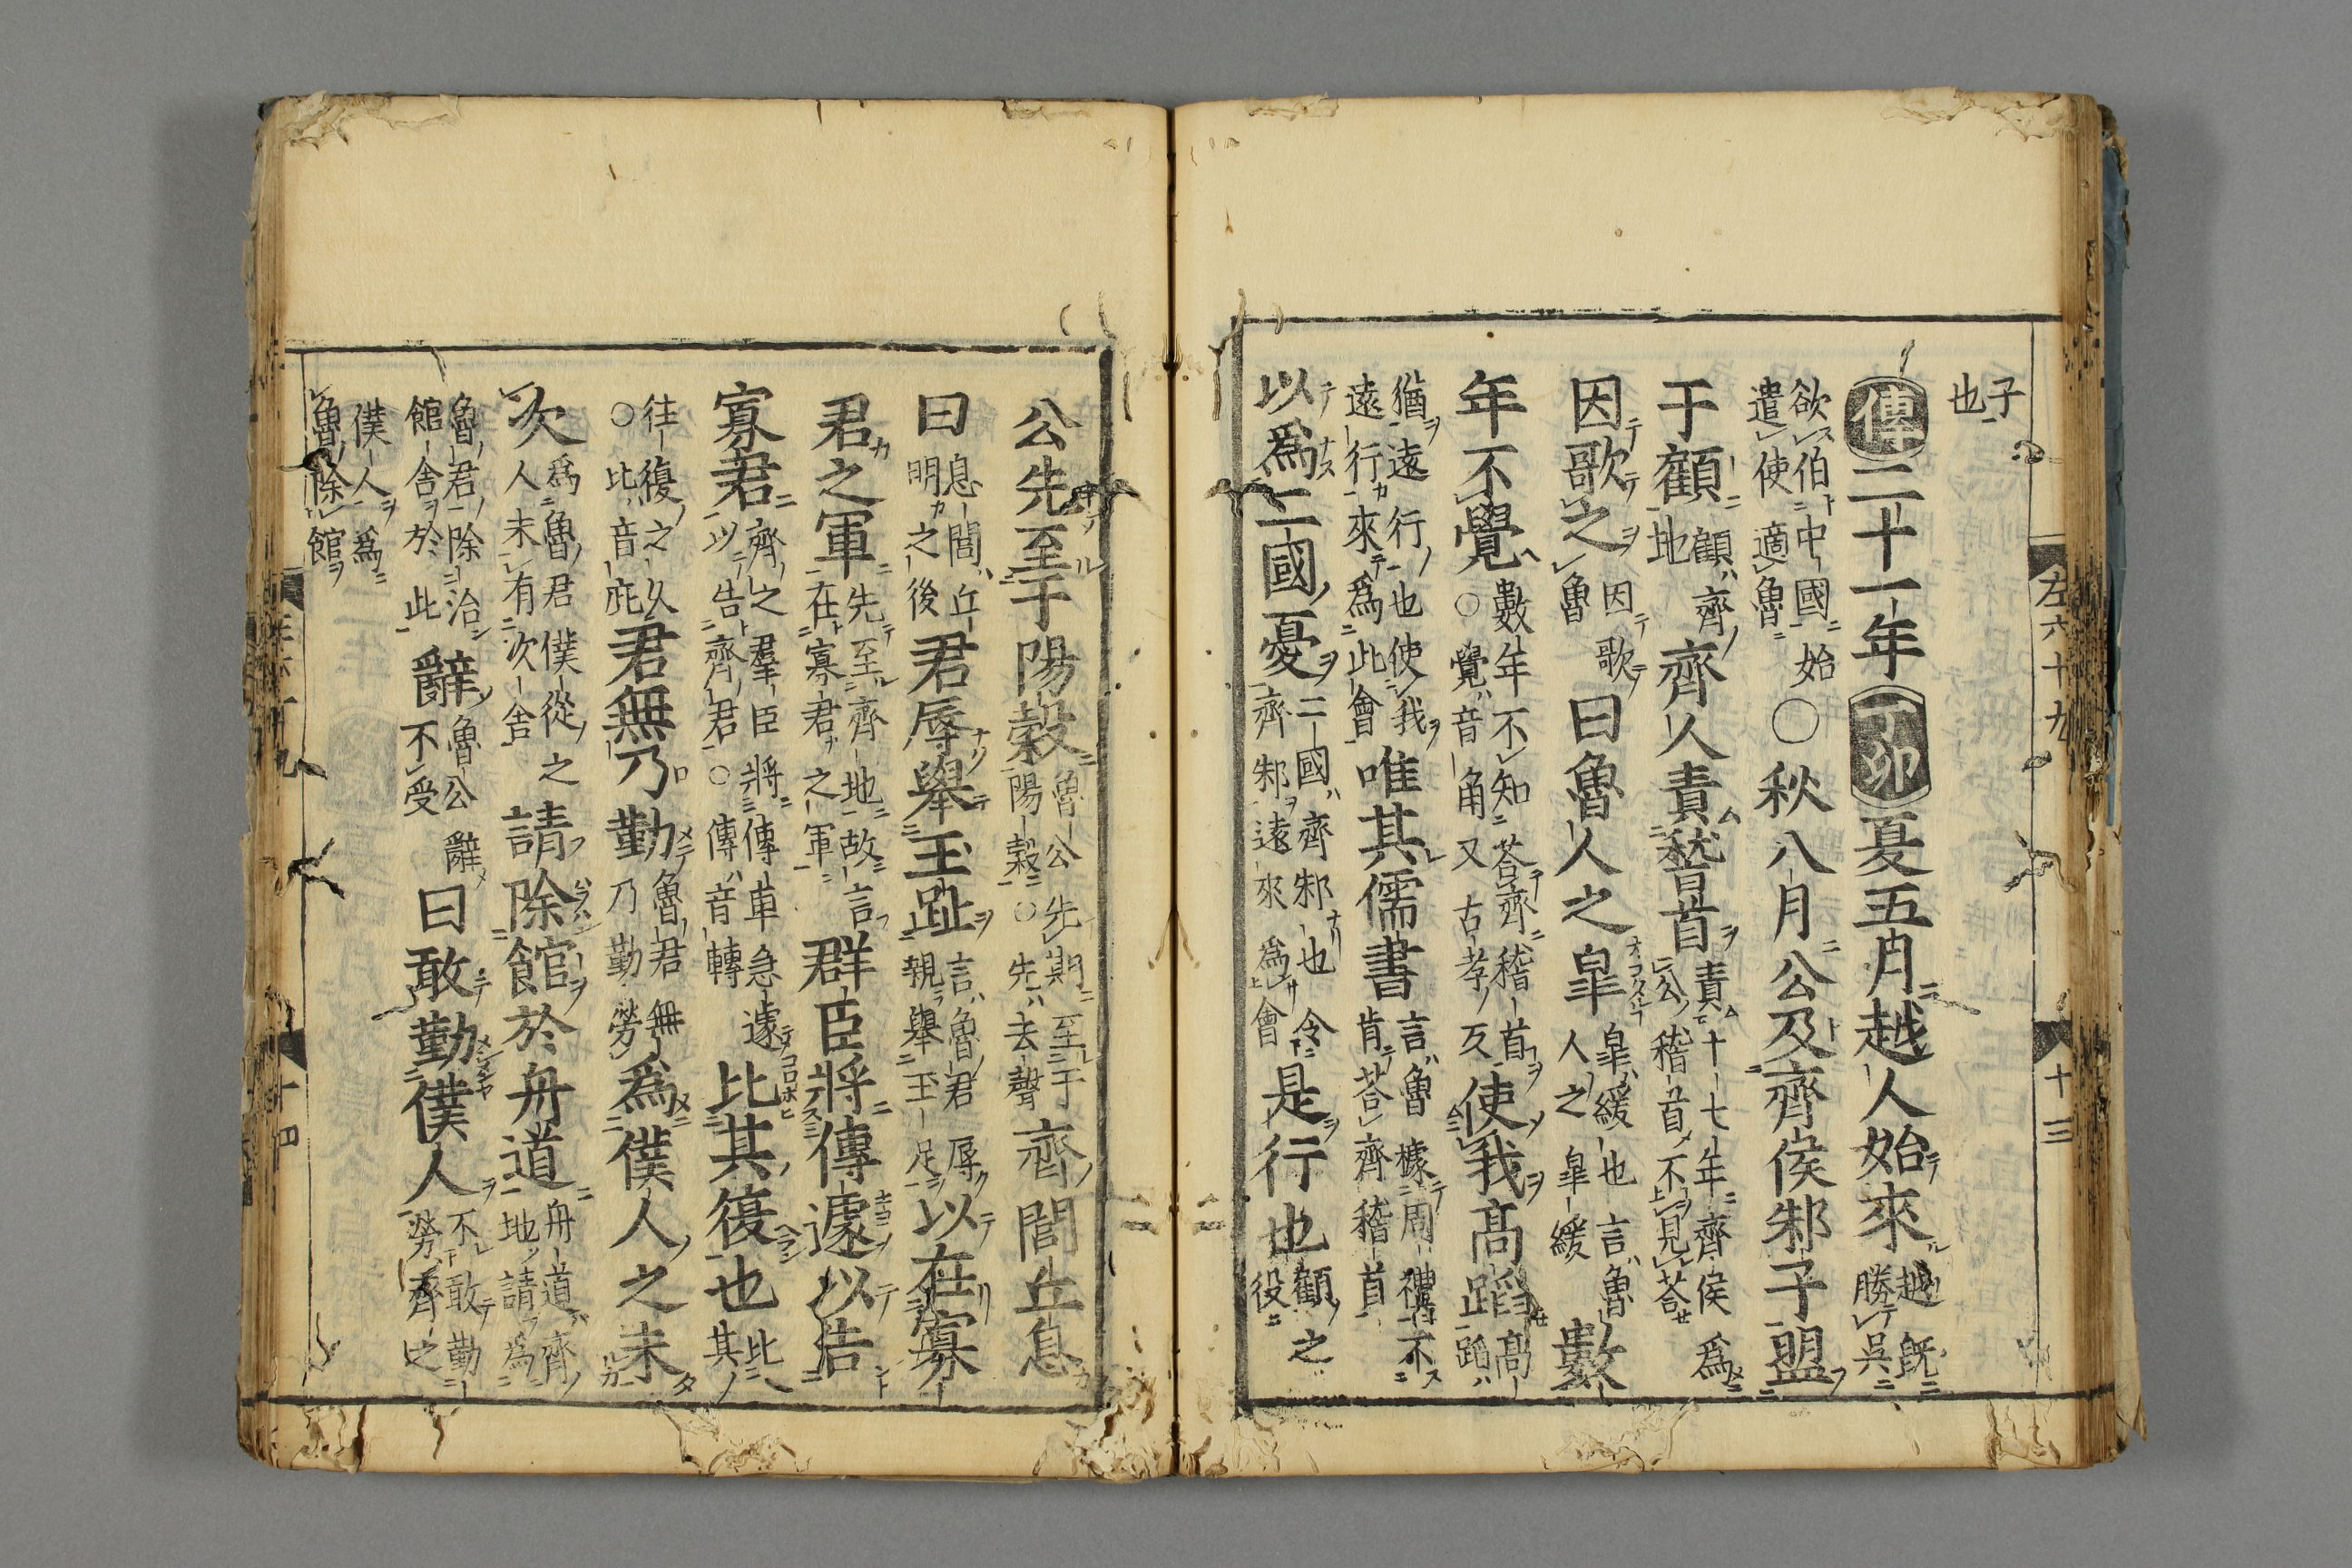 左六十九
十三
子也
傳二十一年丁卯夏五月越人始來越既勝吳
欲伯中國始遣使適魯○秋八月公及齊侯邾子盟
于顧顧齊地齊人責稽首責十七年齊侯爲公稽首不見荅
因歌之因歌魯曰魯人之皐皐緩也言魯人之皐緩數
年不覺數年不知荅齊稽首○覺音角又古孝反使我髙蹈髙蹈
猶遠行也使我遠行來爲此會唯其儒書言魯據周禮不肯荅齊稽首
以爲二國憂二國齊邾也令齊邾遠來爲會是行也顧之役
公先至于陽穀魯公先期至于陽穀○先去聲齊閭丘息
曰息閭丘明之後君辱舉玉趾言魯君辱親舉玉足以在寡
君之軍先至齊地故言在寡君之軍群臣將傳遽以告
寡君齊之羣臣將傳車急遽以告齊君○傳音轉比其復也比其
往復之久○比音庇君無乃勤魯君無乃勤勞爲僕人之未
次爲魯君僕從之人未有次舍請除館於舟道舟道齊地請爲
魯君除治館舍於此辭魯公辭不受曰敢勤僕人不敢勤勞齊之
僕人爲魯除館
十四